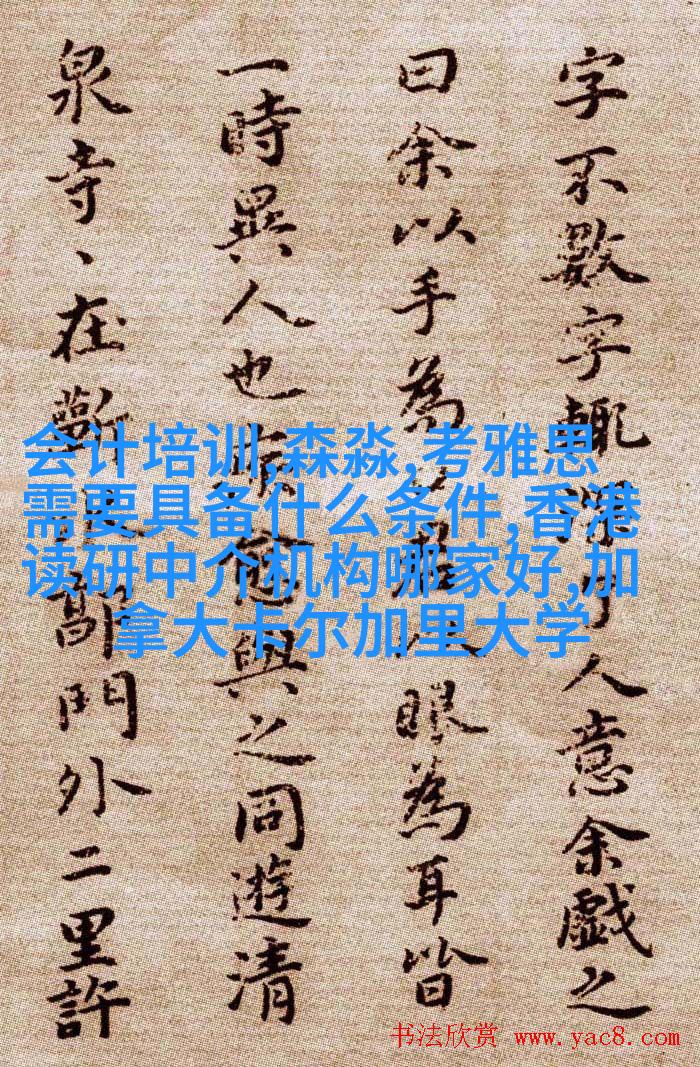 字不數字輒深了人意余戲之
曰余以手為口君以眼為耳皆
一時異人也疾愈與之同遊清
泉寺、在蘄水郭門外二里許
会计培训,森淼,考雅思
需要具备什么条件,香港
读研中介机构哪家好,加
拿大卡尔加里大学
书法欣赏 www.yac8.com